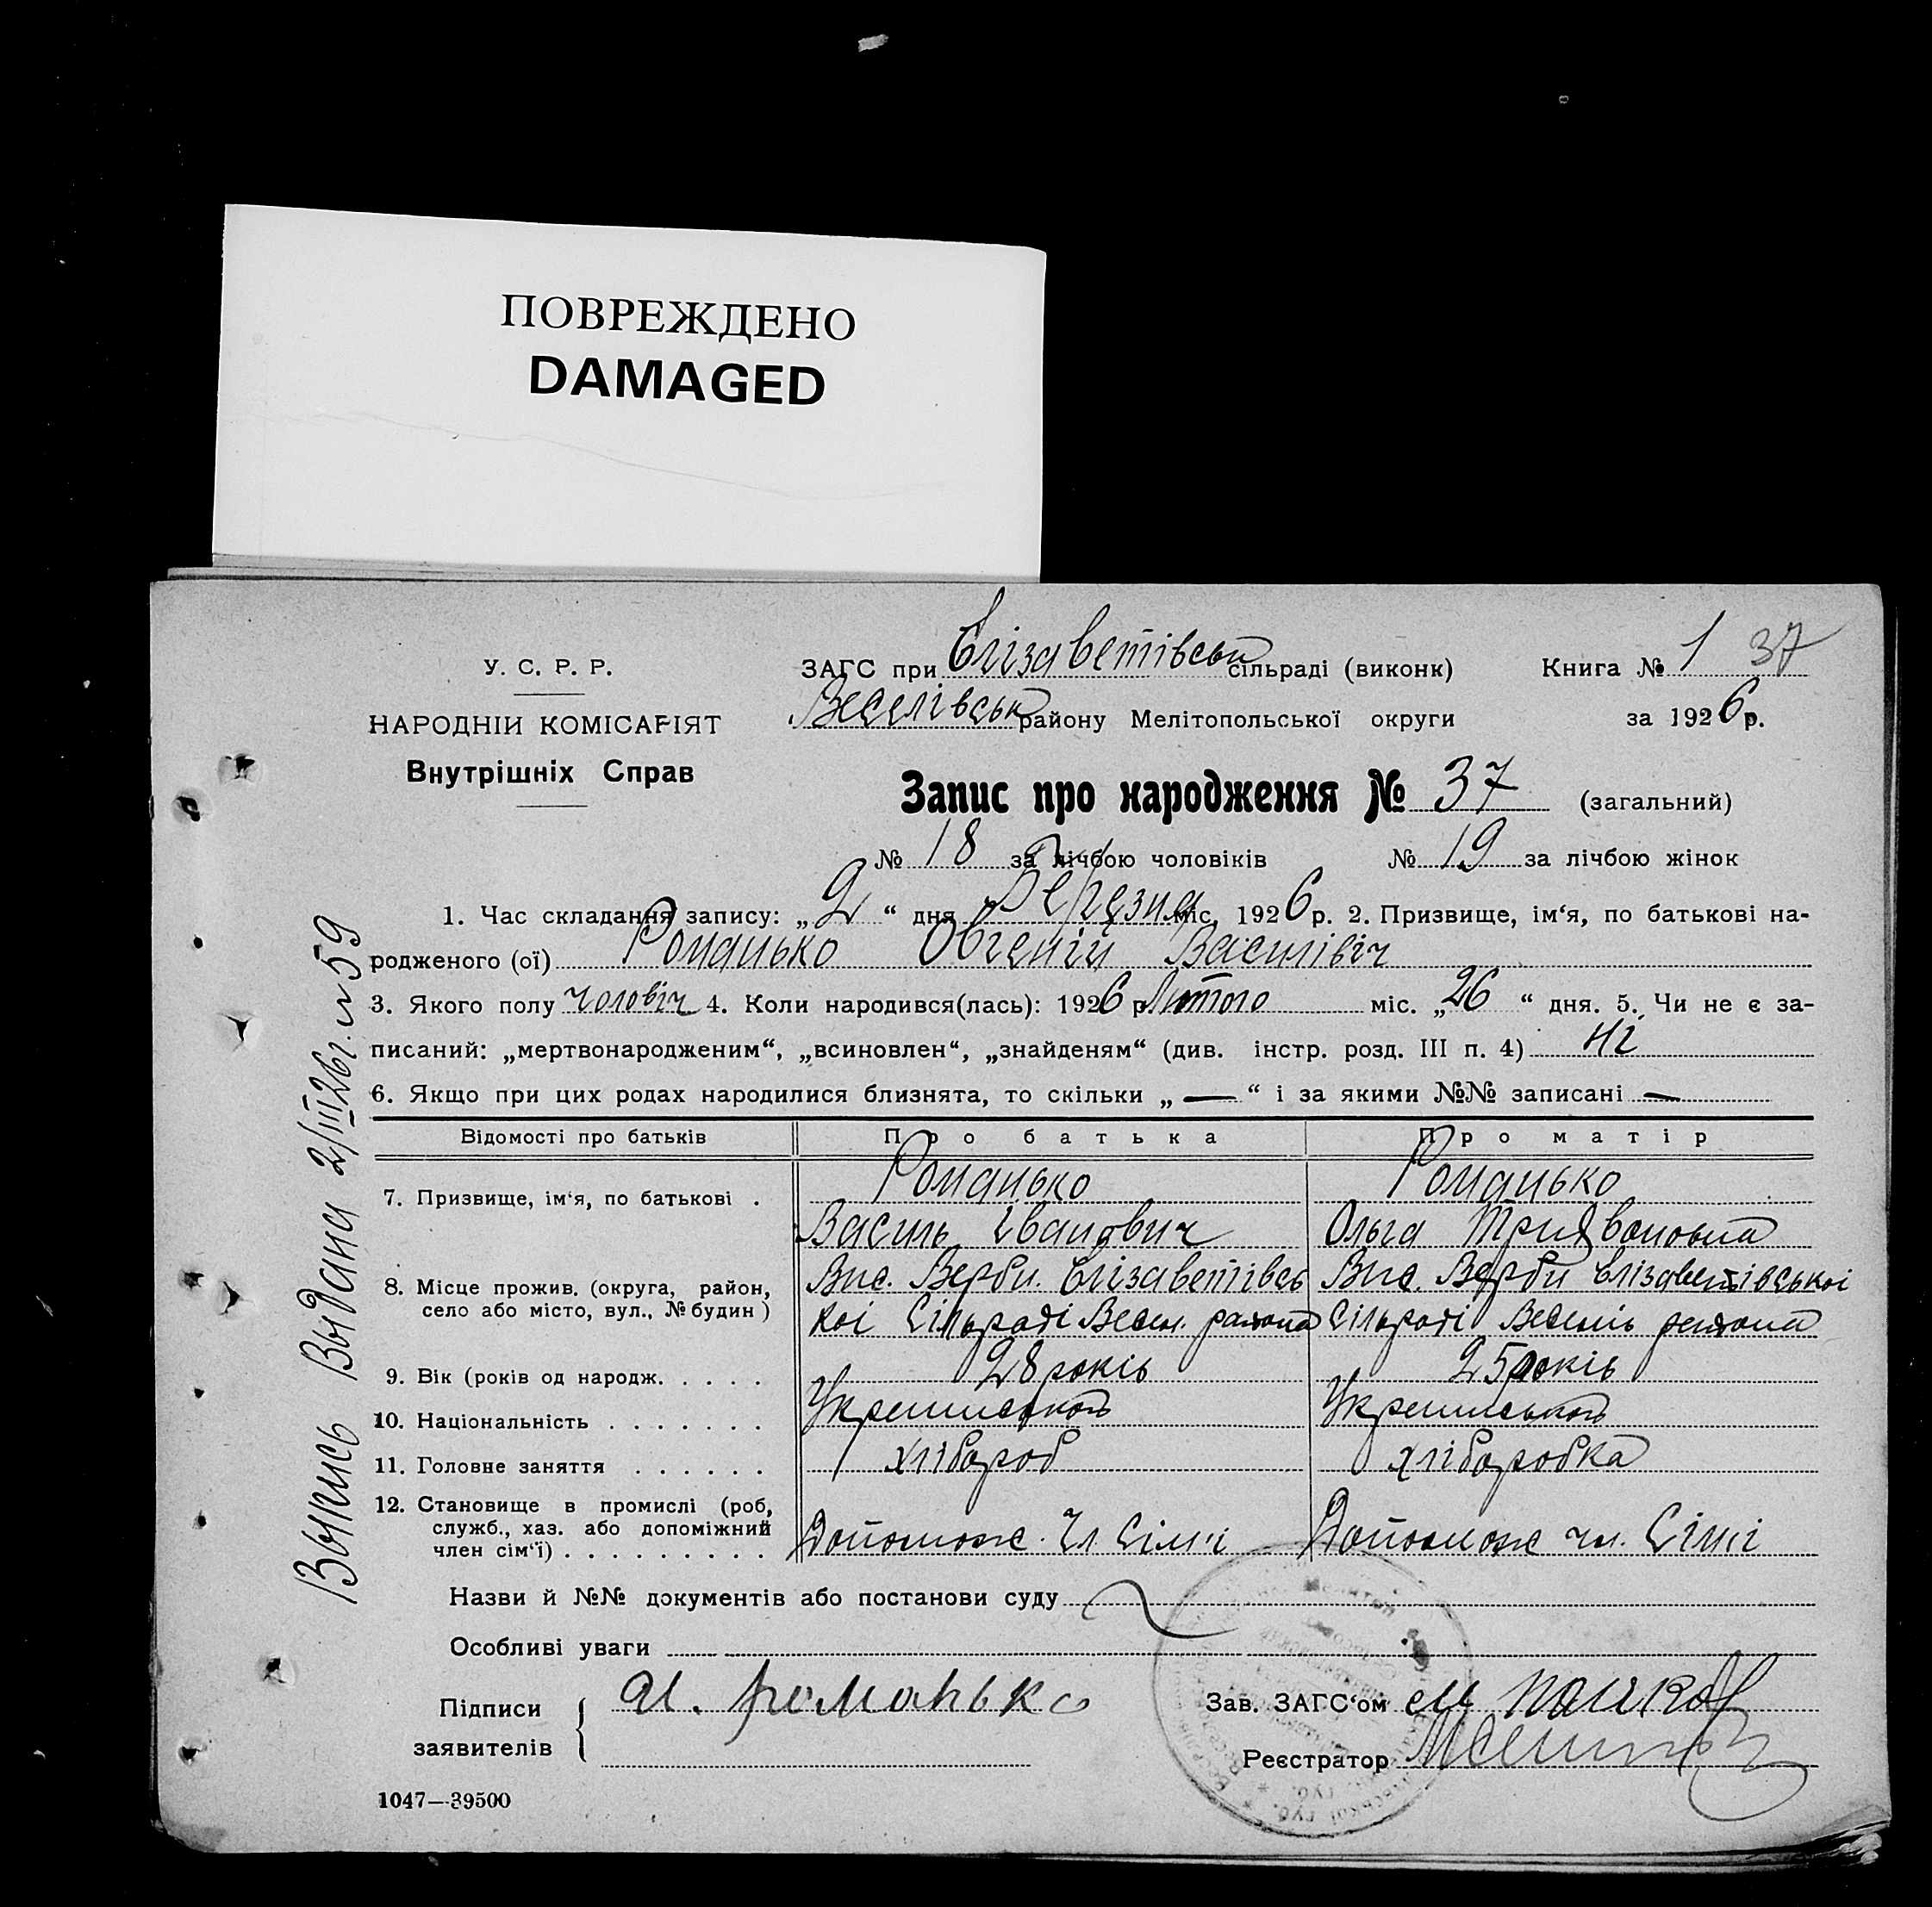 ПОВРЕЖДЕНО
DAMAGED
У. С. Р. Р.
НАРОДНІИ КОМІСАРІЯТ
Внутрішніх Справ
ЗАГС при Єлізаветівськ сільраді (виконк) Книга № 1 37
Веселівськ району Мелітопольської округи за 1926р.
Запис про народження № 37 (загальний)
№ 18 за лічбою чоловіків № 19 за лічбою жінок
1. Час складання запису: „2“ дня Березня міс. 1926р. 2. Призвище, ім‘я, по батькові на-
родженого (ої) Романько Овгеній Василівіч
3. Якого полу чоловіч 4. Коли народився(лась): 1926 р Лютого міс. „26“ дня. 5. Чи не є за-
писаний: „мертвонародженим“, „всиновлен“, „знайденям“ (див. інстр. розд. III п. 4) Ні
6. Якщо при цих родах народилися близнята, то скільки „—“ і за якими №№ записані —
Відомості про батьків Про батька Про матір
7. Призвище, ім‘я, по батькові . Романько Романько
Василь Іванович Ольга
8. Місце прожив. (округа, район, Вис. Верби. Єлізаветівсь Вис. Верби Єлізаветівської
село або місто, вул., № будин) кої Сільраді Весел. района Сільраді района
9. Вік (років од народж. . . . . 28 років 25 років
10. Національність . . . . . . .
11. Головне заняття . . . . . . хлібороб хліборобка
12. Становище в промислі (роб,
служб., хаз. або допоміжний
член сім‘ї) . . . . . . . . . Допомож. Чл. Сім‘і Допомож чл. Сімі
Назви й №№ документів або постанови суду
Особливі уваги
Підписи
заявителів
Романько
Зав. ЗАГС‘ом
Реєстратор
1047—39500
Выпись Выдана 2/III 26г. № 59